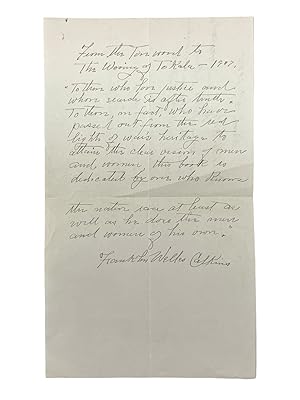 From the Foreword to
The Wooing of Tokala - 1907.
"To them who love justice and
whose search is after truth.
To them, in fact, who have
passed out from the red
lights of war heritage to
attain the clear vision of men
and women this book is
dedicated by one who knows
the native race at least as
well as he does the men
and women of his own."
Franklin Welles Calkins